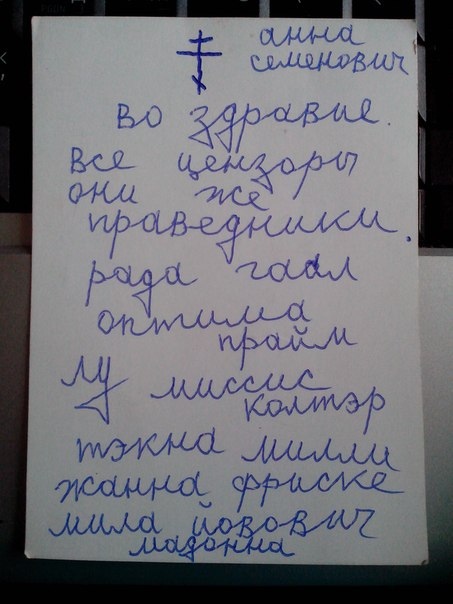 анна
семенович
во здравие.
все цензоры
они же
праведники.
рада гаал
оптима
прайм
лу миссис
колтэр
тэкна милли
жанна фриске
мила йовович
мадонна